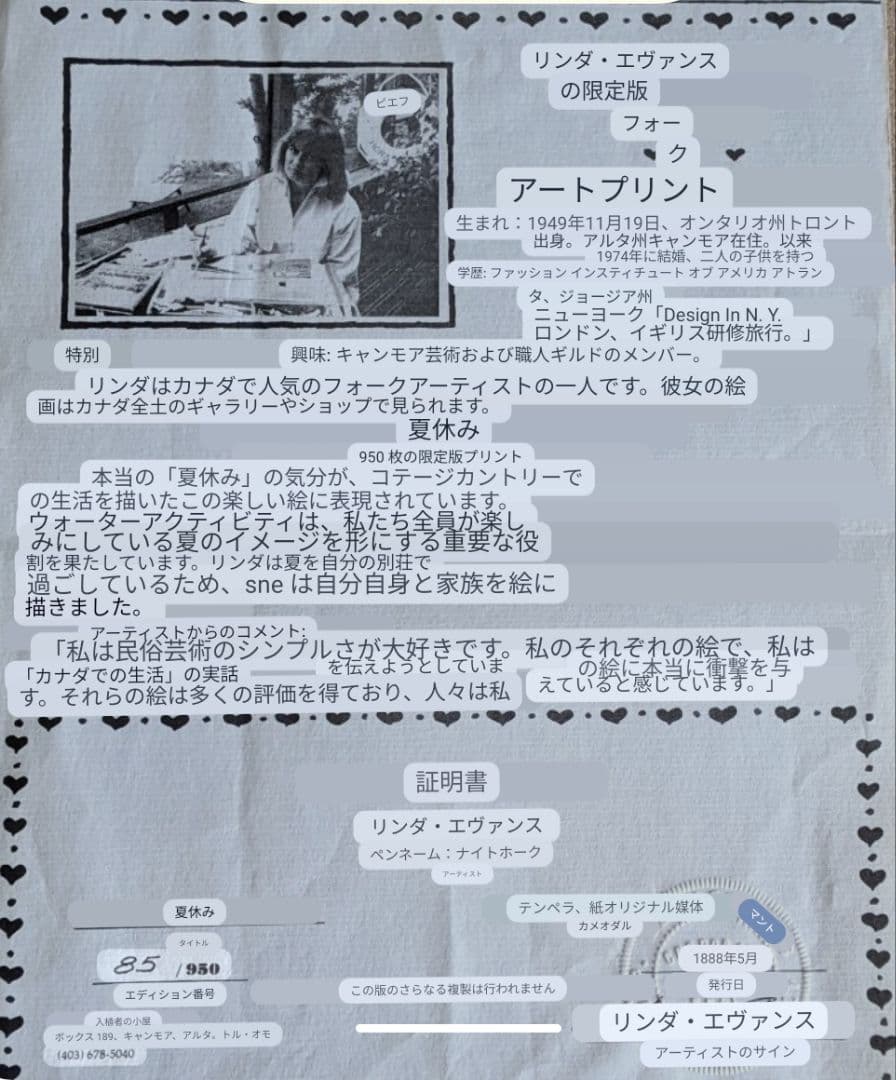 リンダ・エヴァンス
の限定版
フォー
ク
アートプリント
ビエフ
生まれ：1949年11月19日、オンタリオ州トロント
出身。アルタ州キャンモア在住。以来
1974年に結婚、二人の子供を持つ
学歴: ファッション インスティチュート オブ アメリカ アトラン
タ、ジョージア州
ニューヨーク「Design In N. Y.
ロンドン、イギリス研修旅行。」
特別 興味: キャンモア芸術および職人ギルドのメンバー。
リンダはカナダで人気のフォークアーティストの一人です。彼女の絵
画はカナダ全土のギャラリーやショップで見られます。
夏休み
950 枚の限定版プリント
本当の「夏休み」の気分が、コテージカントリーで
の生活を描いたこの楽しい絵に表現されています。
ウォーターアクティビティは、私たち全員が楽し
みにしている夏のイメージを形にする重要な役
割を果たしています。リンダは夏を自分の別荘で
過ごしているため、sne は自分自身と家族を絵に
描きました。
アーティストからのコメント:
「私は民俗芸術のシンプルさが大好きです。私のそれぞれの絵で、私は
「カナダでの生活」の実話 を伝えようとしていま
す。それらの絵は多くの評価を得ており、人々は私
の絵に本当に衝撃を与
えていると感じています。」
証明書
リンダ・エヴァンス
ペンネーム：ナイトホーク
アーティスト
夏休み
タイトル
85 /950
エディション番号
テンペラ、紙オリジナル媒体
カメオダル
マント
1888年5月
発行日
この版のさらなる複製は行われません
リンダ・エヴァンス
アーティストのサイン
入植者の小屋
ボックス 189、キャンモア、アルタ。トル・オモ
(403) 678-5040